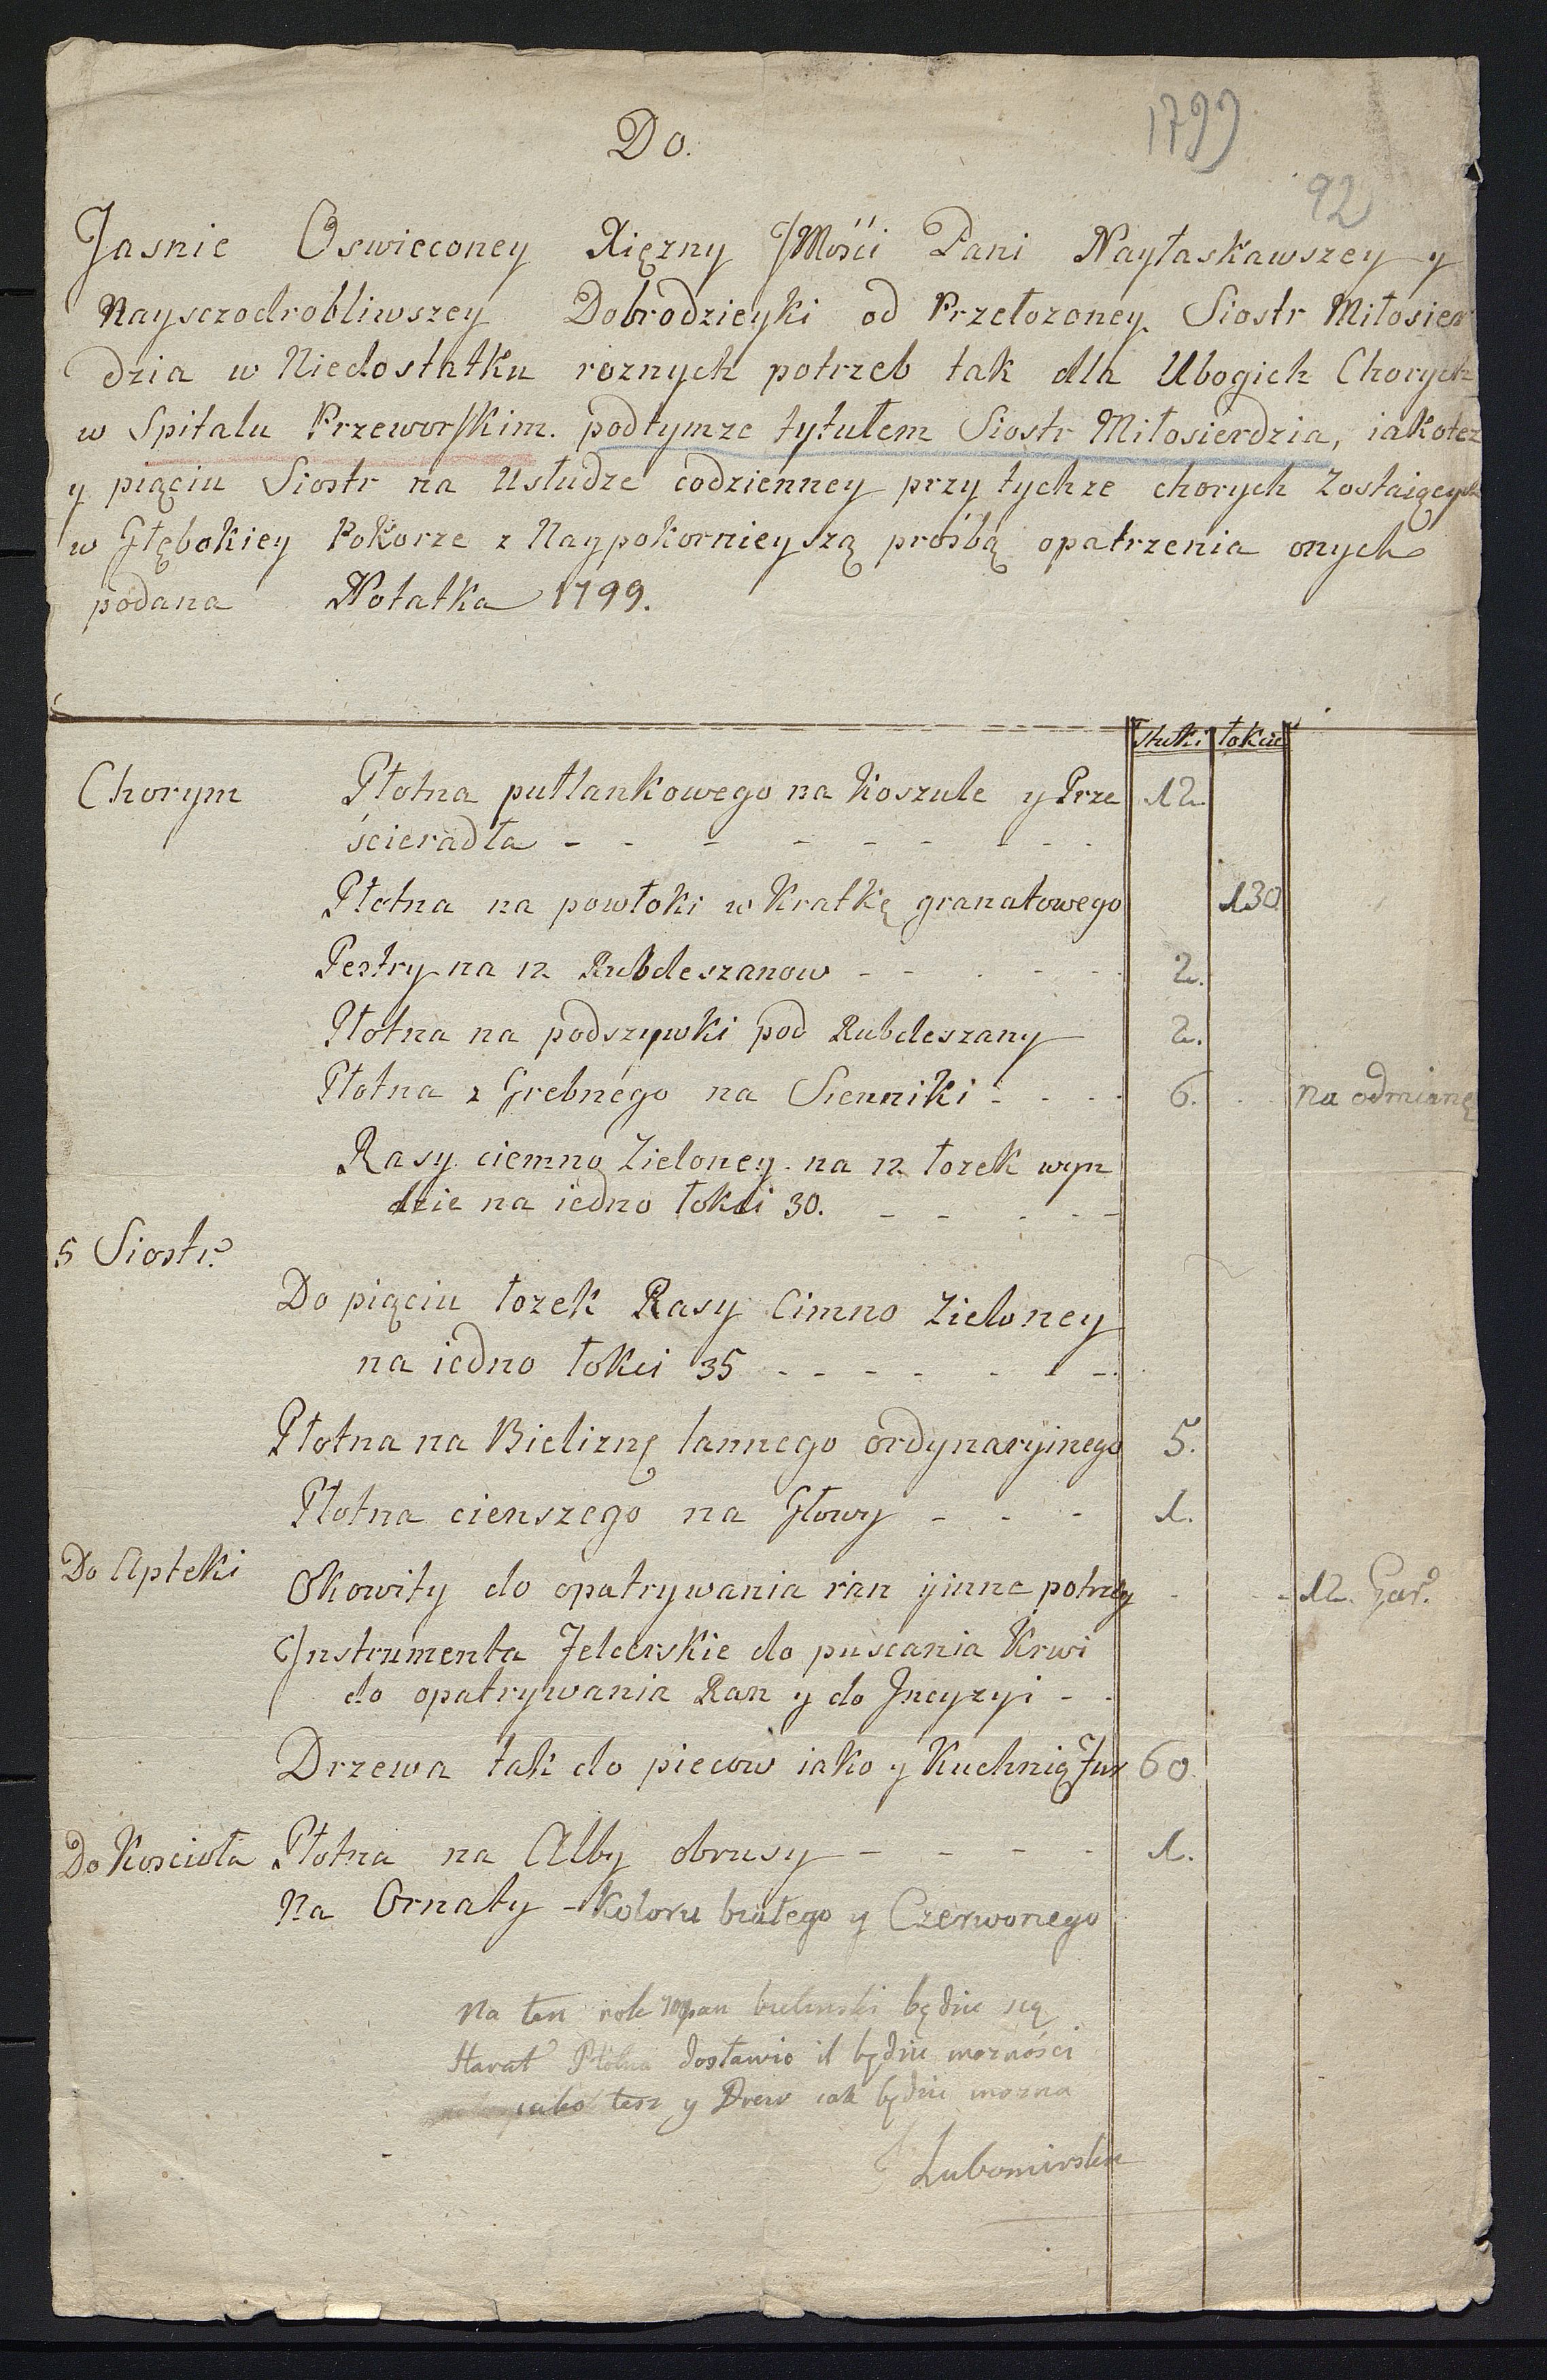 1799
Do.
92
Jasnie Oswieconey Xięzny JMości Pani Nayłaskawszey y
Naysczodrobliwszey Dobrodzieyki od Przełozoney Siostr Miłosier
dzia w Niedostatku roznych potrzeb tak dla Ubogich Chorych
w Spitalu Przeworskim. podtymze tytułem Siostr Miłosierdzia, iakotez
y piąciu Siostr na Usłudze codzienney przy tychze chorych zostaiących
w Głębokiey Pokorze z Naypokornieyszą prośbą opatrzenia onych
podana Notatka 1799.
sztuki łokcie
Chorym Płotna putlankowego na Koszule y Prze 12.
ścieradła - - - - - - - -
Płotna na powłoki w Kratkę granatowego 130
Pestry na 12 Rubdeszanow - - - - - 2.
Płotna na podszywki pod Rubdeszany 2.
Płotna z Grebnego na Sienniki - - - - 6. na odmianę
Rasy ciemno Zieloney na 12 łozek wyn
dzie na iedno łokci 30. - - - - -
5 Siostr.
Do piąciu łozek Rasy Cimno Zieloney
na iedno łokci 35 - - - - - - -
Płotna na Bieliznę lannego ordynaryinego 5.
Płotna cienszego na Głowy - - - 1.
Do Apteki Okowity do opatrywania ran yinne potrzey - - 12. Gar.
Instrumenta Felcerskie do puscania Krwi
do opatrywania Ran y do Incyzyi - -
Drzewa tak do piecow iako y Kuchnią Fur 60.
Do Koscioła Płotna na Alby obrusy - - - - 1.
Na Ornaty - Koloru białego y Czerwonego
Na ten rok będzie się
starał Płótna dostawić il będzie mozności
jako tesz y Drew iak będzie mozna
Lubomirska